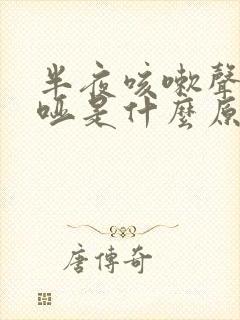 半夜咳嗽聲
啞是什麼原
唐傳奇